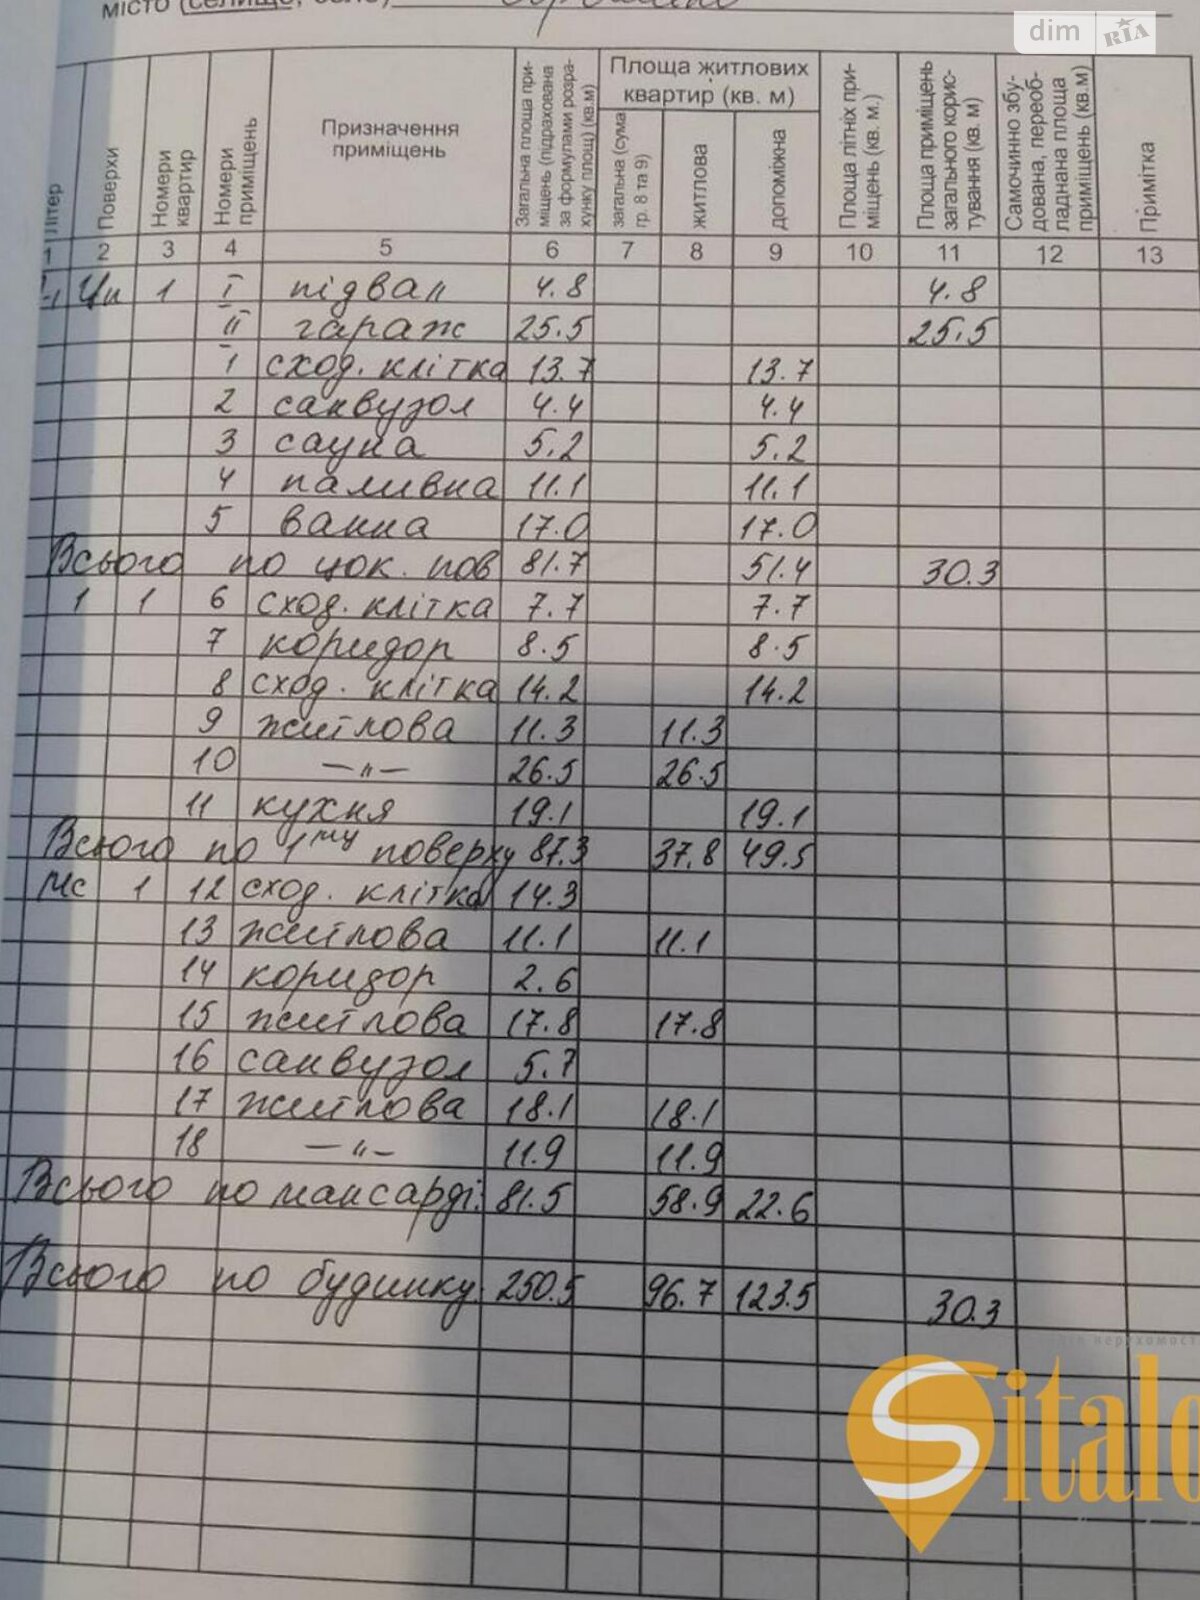 місто (селище, село)
dim RIA
Літер
Поверхи
Номери квартир
Номери приміщень
Призначення приміщень
Загальна площа приміщень (підрахована за формулами розрахунку площ) (кв.м)
Площа житлових квартир (кв. м)
загальна (сума гр. 8 та 9)
житлова
допоміжна
Площа літніх приміщень (кв. м.)
Площа приміщень загального користування (кв. м)
Самочинно збудована, переобладнана площа приміщень (кв.м
Примітка
1 2 3 4 5 6 7 8 9 10 11 12 13
Цп 1 I підвал 4.8 4.8
II гараж 25.5 25.5
1 сход. клітка 13.7 13.7
2 санвузол 4.4 4.4
3 сауна 5.2 5.2
4 паливна 11.1 11.1
5 ванна 17.0 17.0
Всього по цок. пов 81.7 51.4 30.3
1 1 6 сход. клітка 7.7 7.7
7 коридор 8.5 8.5
8 сход. клітка 14.2 14.2
9 житлова 11.3 11.3
10 —"— 26.5 26.5
11 кухня 19.1 19.1
Всього по 1му поверху 87.3 37.8 49.5
Мс 1 12 сход. клітка 14.3
13 житлова 11.1 11.1
14 коридор 2.6
15 житлова 17.8 17.8
16 санвузол 5.7
17 житлова 18.1 18.1
18 —"— 11.9 11.9
Всього по мансарді: 81.5 58.9 22.6
Всього по будинку: 250.5 96.7 123.5 30.3
Sital